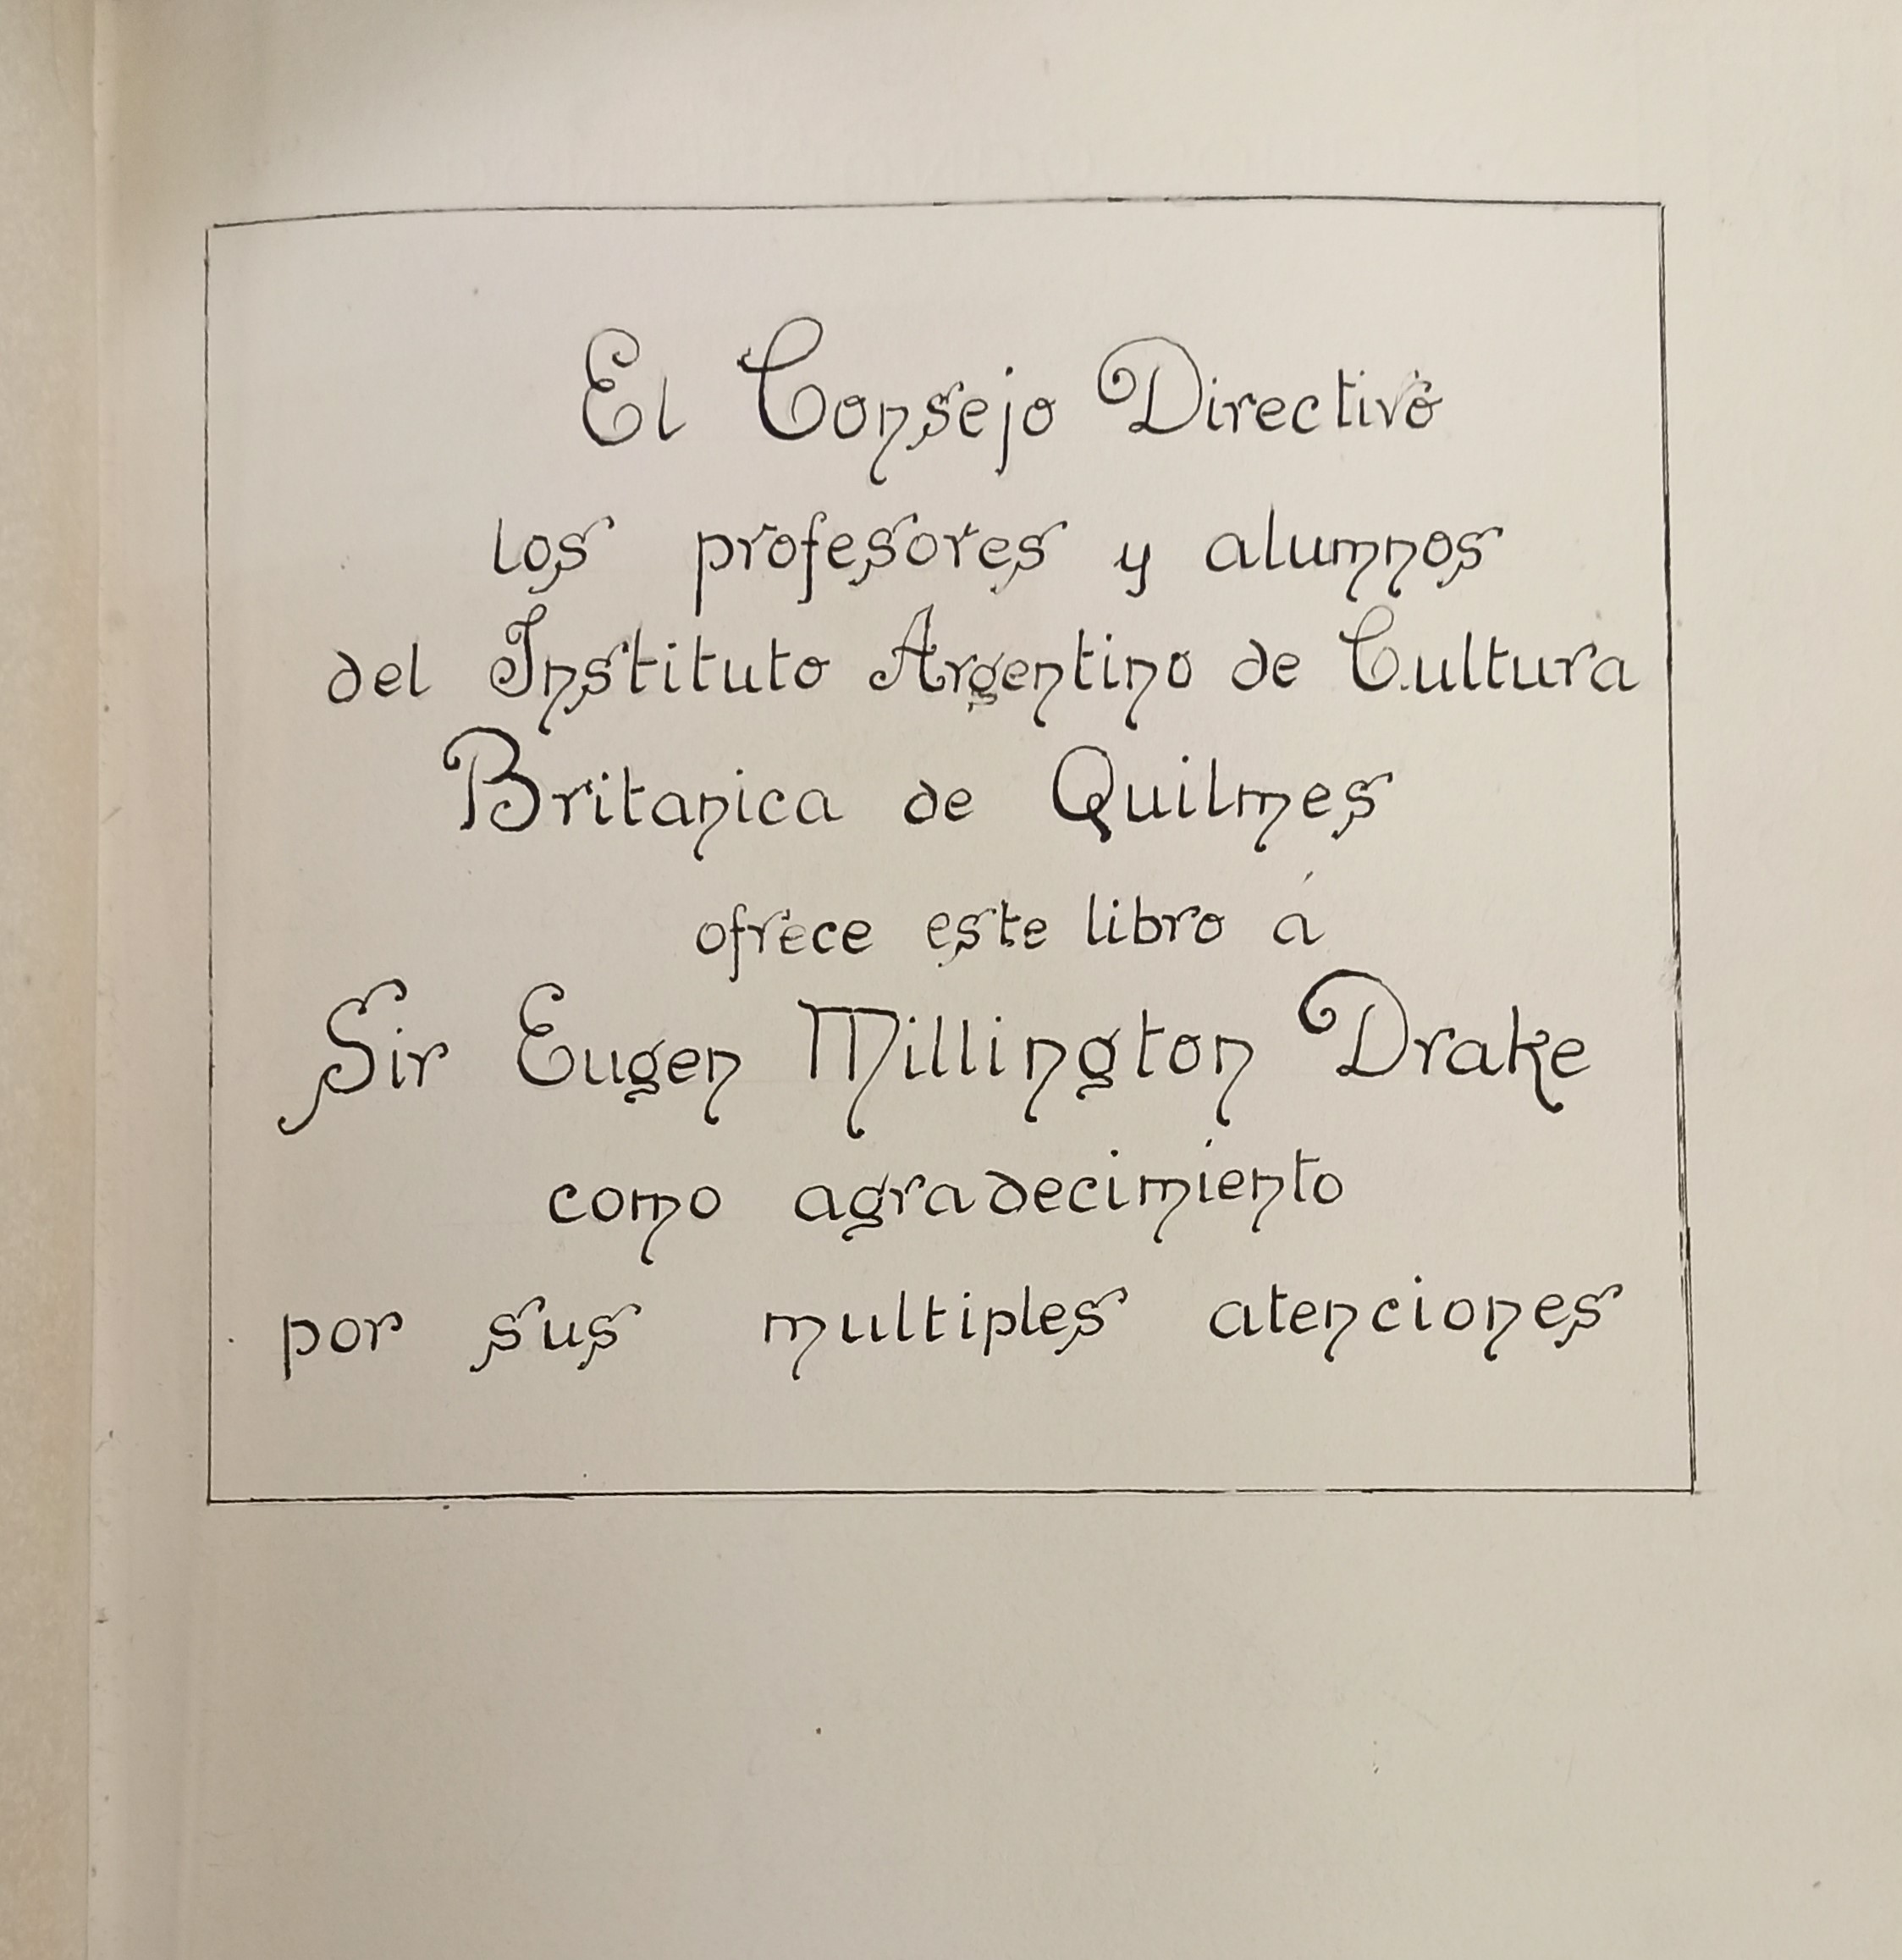 El Consejo Directivo
los profesores y alumnos
del Instituto Argentino de Cultura
Britanica de Quilmes
ofrece este libro á
Sir Eugen Millington Drake
como agradecimiento
por sus multiples atenciones